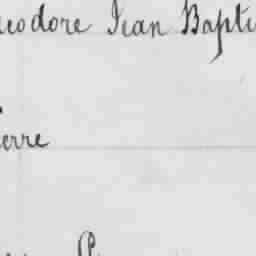 eodore Jean Bapti
erre